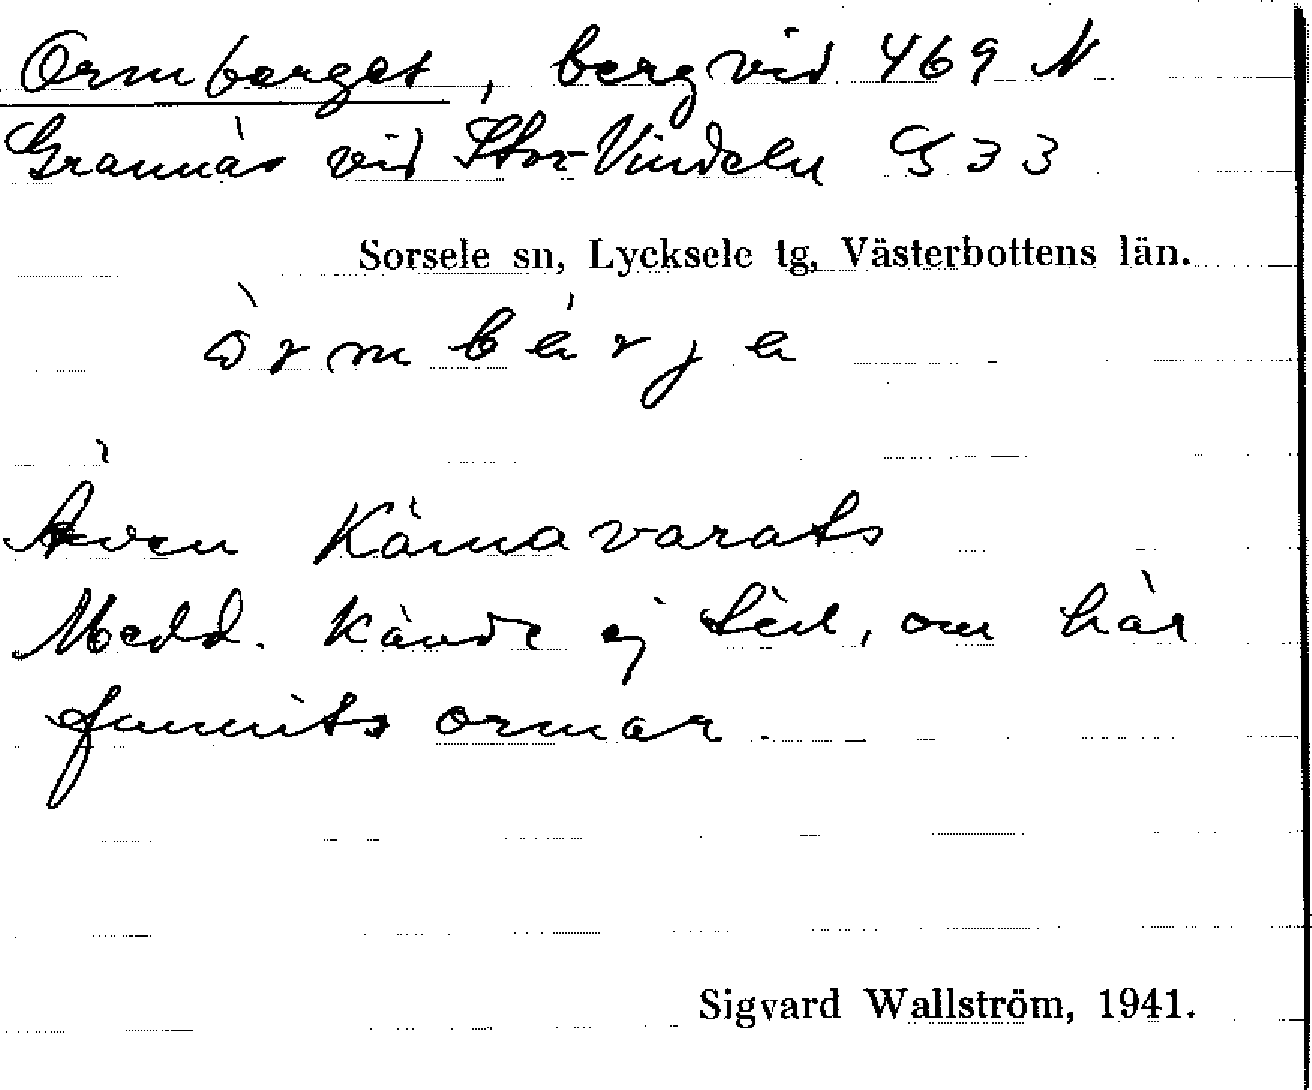 Ormberget, berg vid 469 N
Grannäs vid Stor-Vindeln S 33
Sorsele sn, Lycksele tg, Västerbottens län.
òrmbárja
Även Kärnavarats
Medd. kände ej till, om här
funnits ormar.
Sigvard Wallström, 1941.